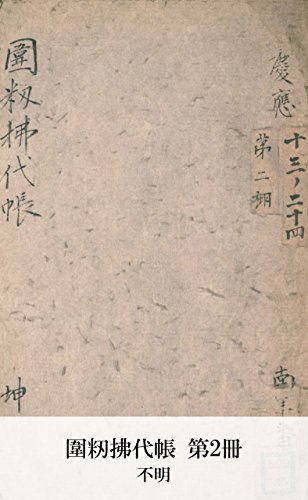 慶應
十三ノ二十四
第二冊
圍籾拂代帳
坤
圍籾拂代帳 第2冊
不明